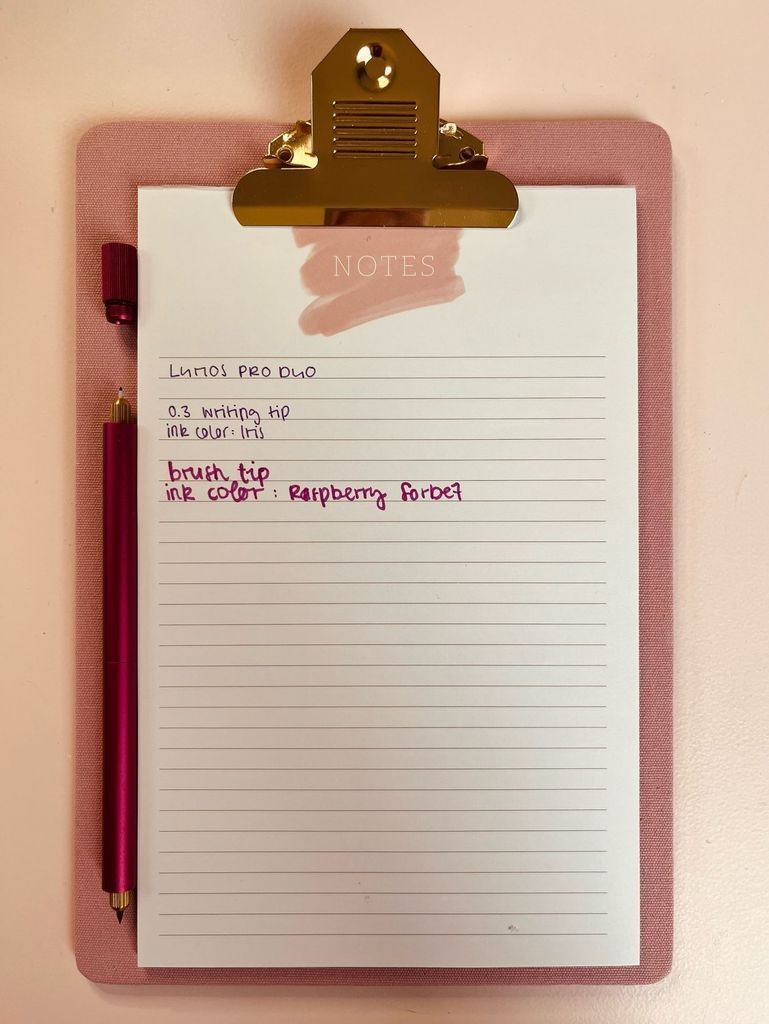 NOTES
LUMOS PRO DUO
0.3 writing tip
ink color: Iris
brush tip
ink color : Raspberry Sorbet